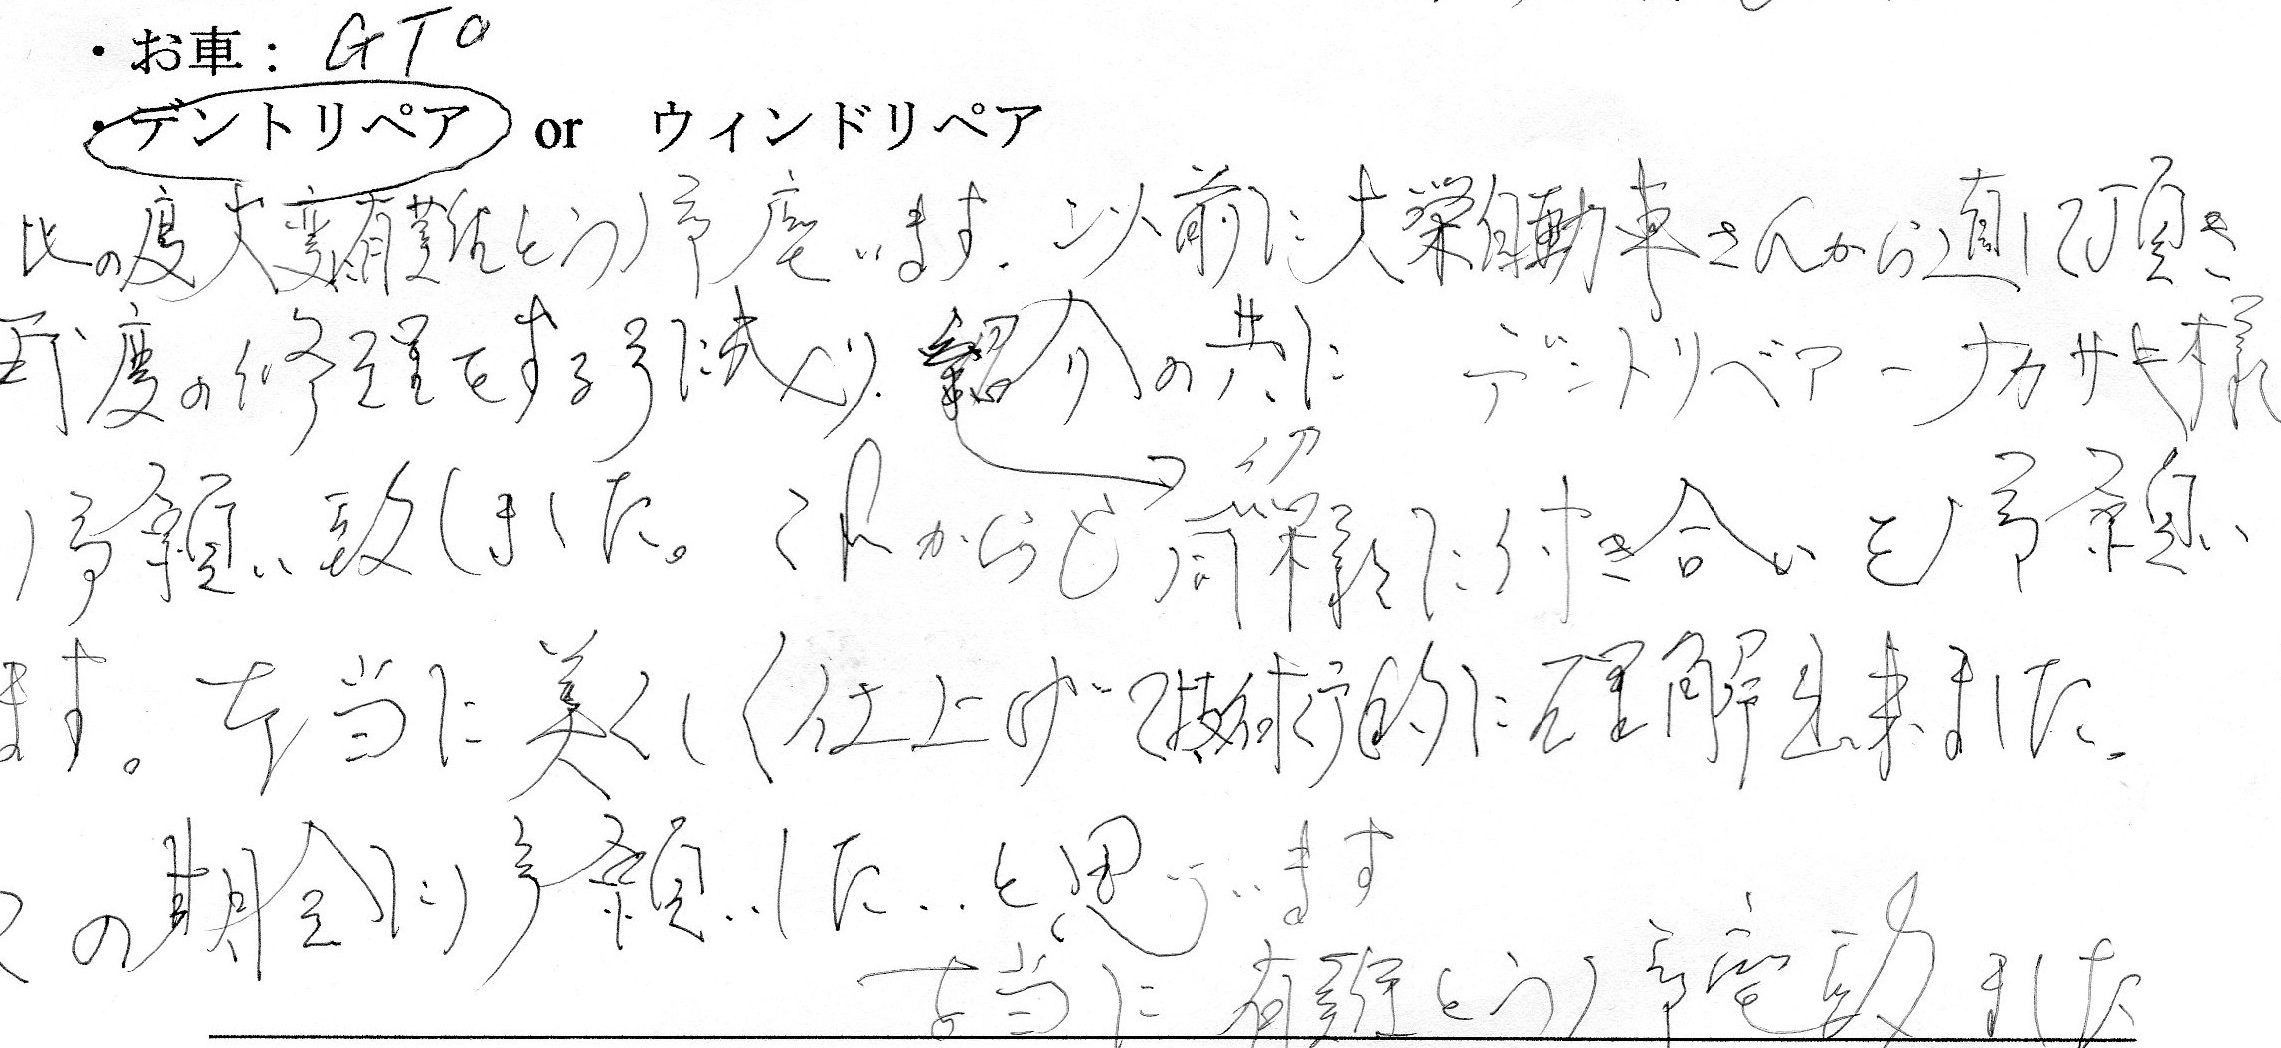 ・お車： GTO
・デントリペア or ウィンドリペア
此の度大変有難とう御座います。以前に大栄自動車さんから直して頂き
再度の修理をする事に成り、紹介の共に デントリペアーナカザキ様
御願い致しました。これからも同様に付き合いを御願い
ます。本当に美しく仕上げて技術的に理解出来ました。
の期会に御願いしたいと思います
本当に有難とう御座致ました